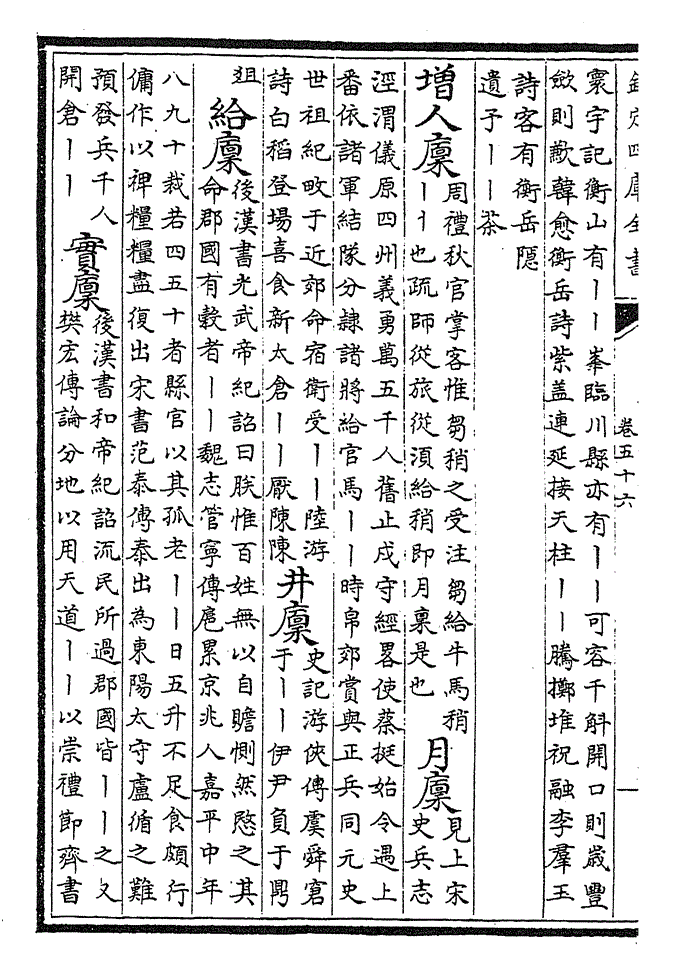 欽定四庫全書
卷五十六
一
寰宇記衡山有丨丨峯臨川縣亦有丨丨可容千斛開口則歲豐
斂則歉韓愈衡岳詩紫盖連延接天柱丨丨騰擲堆祝融李羣玉
詩客有衡岳隱
遺予丨丨茶
增人廩
周禮秋官掌客惟芻稍之受注芻給牛馬稍
丨丨也疏師從旅從湏給稍即月稟是也
月廩
見上宋
史兵志
涇渭儀原四州義勇萬五千人舊止戍守經畧使蔡挺始令遇上
番依諸軍結隊分隸諸將給官馬丨丨時帛郊賞與正兵同元史
世祖紀畋于近郊命宿衛受丨丨陸游
詩白稻登場喜食新太倉丨丨厭陳陳
井廩
史記游俠傳虞舜窘
于丨丨伊尹負于鼎
俎
給廩
後漢書光武帝紀詔曰朕惟百姓無以自贍惻然愍之其
命郡國有穀者丨丨魏志管寧傳扈累京兆人嘉平中年
八九十裁若四五十者縣官以其孤老丨丨日五升不足食頗行
傭作以裨糧糧盡復出宋書范泰傳泰出為東陽太守盧循之難
預發兵千人
開倉丨丨
實廩
後漢書和帝紀詔流民所過郡國皆丨丨之又
樊宏傳論分地以用天道丨丨以崇禮節齊書